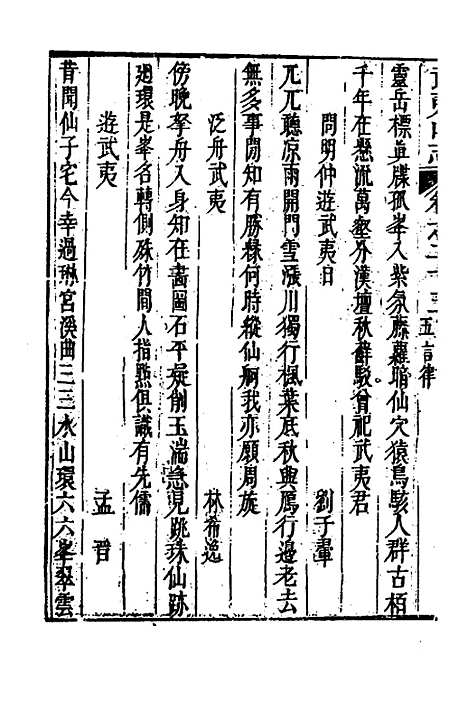 五言律
靈岳標真牒孤峯入紫氛藤蘿暗仙穴猿鳥駭人群古栢
千年在懸流萬壑分漢壇秋蘚駁曾祀武夷君
問明仲遊武夷日
劉子翬
兀兀聽凉雨開門雪漲川獨行楓葉底秋興鴈行邊老去
無多事閒知有勝緣何時縱仙舸我亦願周旋
泛舟武夷
林希逸
傍晚拏舟入身知在畫圖石平疑削玉湍急見跳珠仙跡
廻環是峯名轉側殊竹間人指㸃俱識有先儒
遊武夷
孟
昔聞仙子宅今幸過琳宮溪曲三三水山環六六峯翠雲